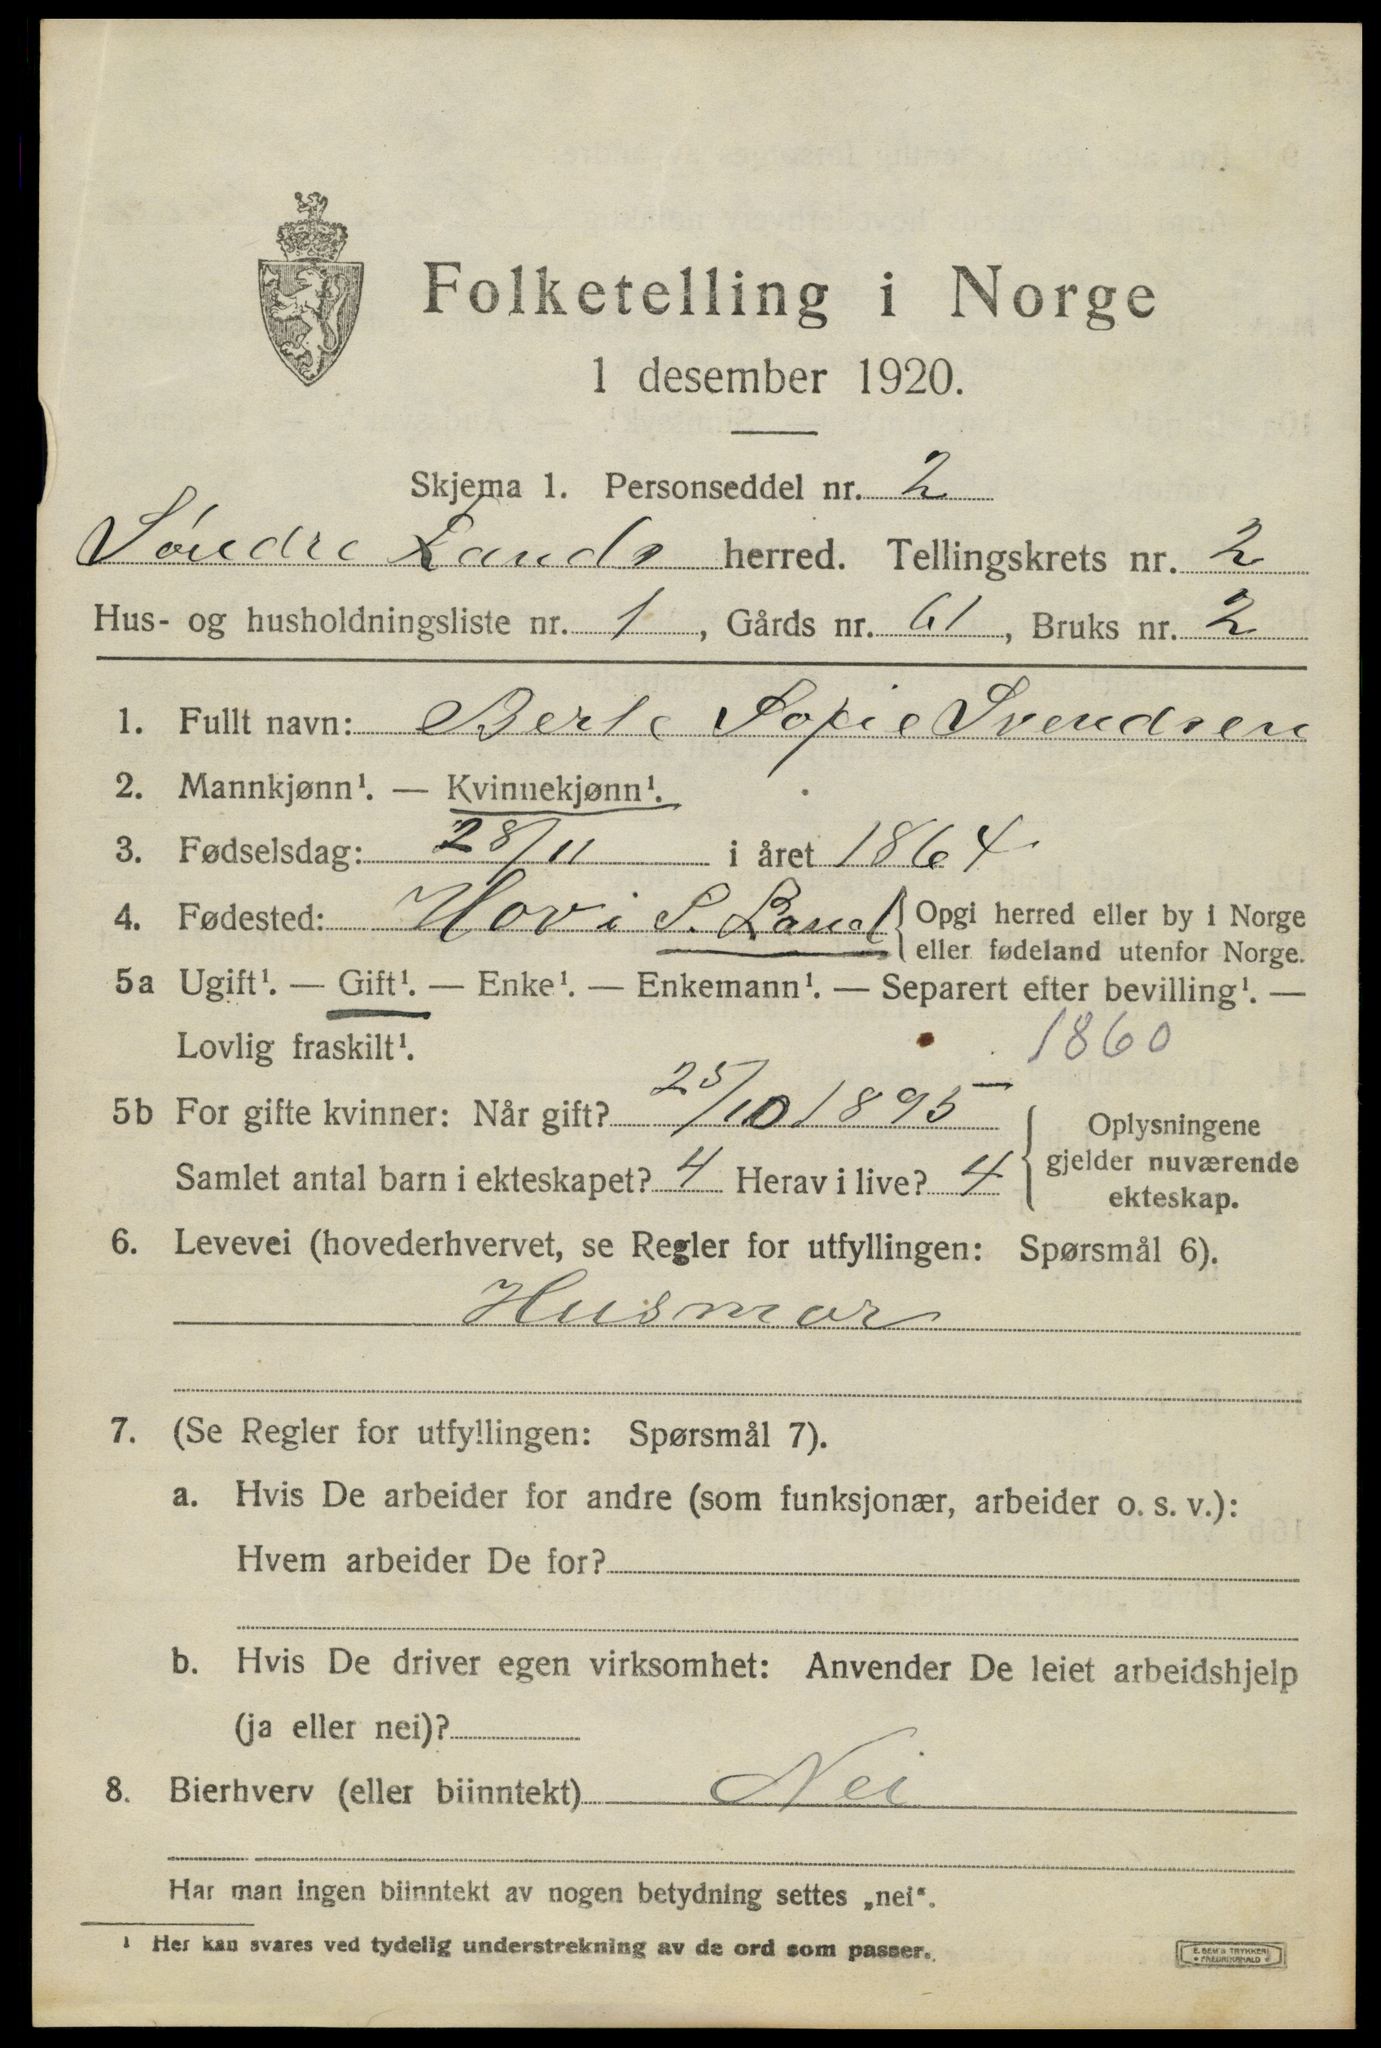 Folketelling i Norge
1 desember 1920.
Skjema 1. Personseddel nr. 2
Søndre Lands herred. Tellingskrets nr. 2
Hus- og husholdningsliste nr. 1, Gårds nr. 61, Bruks nr. 2
1. Fullt navn: Berte Sofie Svendsen
2. Mannkjønn¹. — Kvinnekjønn¹.
3. Fødselsdag: 28/11 i året 1864
4. Fødested: Hov i S. Land { Opgi herred eller by i Norge
eller fødeland utenfor Norge.
5a Ugift¹. — Gift¹. — Enke¹. — Enkemann¹. — Separert efter bevilling¹. —
Lovlig fraskilt¹. 1860
5b For gifte kvinner: Når gift? 25/10 1895
Samlet antal barn i ekteskapet? 4 Herav i live? 4
{ Oplysningene
gjelder nuværende
ekteskap.
6. Levevei (hovederhvervet, se Regler for utfyllingen: Spørsmål 6).
Husmor
7. (Se Regler for utfyllingen: Spørsmål 7).
a. Hvis De arbeider for andre (som funksjonær, arbeider o. s. v.):
Hvem arbeider De for?
b. Hvis De driver egen virksomhet: Anvender De leiet arbeidshjelp
(ja eller nei)?
8. Bierhverv (eller biinntekt) Nei
Har man ingen biinntekt av nogen betydning settes „nei“.
¹ Her kan svares ved tydelig understrekning av de ord som passer.
E. SEM'S TRYKKERI
FREDRIKSHALD